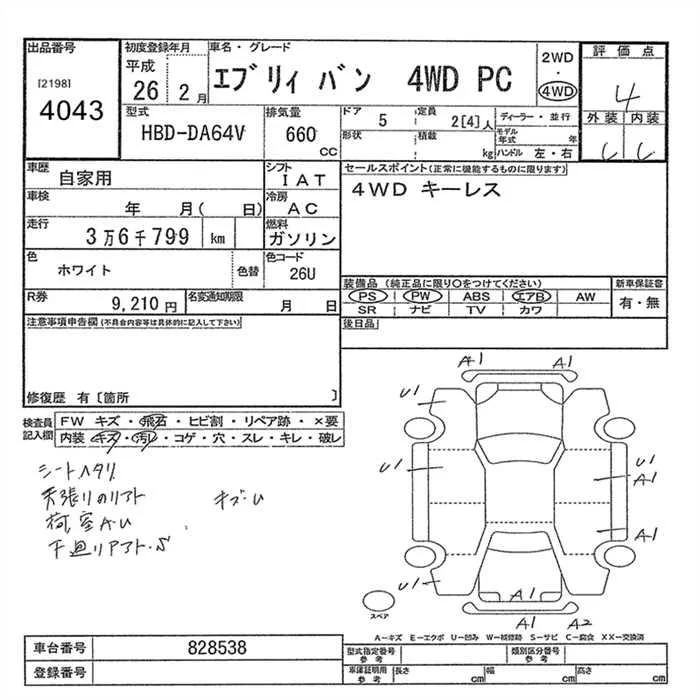 出品番号
[2198]
4043
初度登録年月
平成
26 2 月
車名・グレード
エブリィ バン 4WD PC
2WD
・
4WD
評価点
4
外装 内装
型式
HBD-DA64V
排気量
660 CC
ドア
5
定員
2[4]人
ディーラー・並行
形状
積載
kg
モデル年式
年
ハンドル 左・右
車歴
自家用
シフト
IAT
車検
年 月( 日)
冷房
AC
走行
3万6千799 km
燃料
ガソリン
色
ホワイト
色替
色コード
26U
R券
9,210円
名変通知期限
月 日
セールスポイント(正常に機能するものに限ります)
4WD キーレス
装備品(純正品に限り○をつけてください)
新車保証書
PS PW ABS エアB AW
有・無
SR ナビ TV カワ
後日品
注意事項申告欄(不具合内容等は具体的に記入して下さい)
修復歴 有〔箇所 〕
検査員
記入欄
FW キズ・飛石・ヒビ割・リペア跡・×要
内装・キズ・汚レ・コゲ・穴・スレ・キレ・破レ
シートヘタリ
天張りのリフト キズ・U
荷室A・U
下廻りアフト・S
A1 A1
U1
U1
U1
A1
A1
U1
A1
A1 A2
スペア
A―キズ E―エクボ U―凹み W―補修跡 S―サビ C―腐食 XX―交換済
車台番号
828538
登録番号
型式指定番号
参考
類別区分番号
参考
車庫証明用
参考
長さ cm
幅 cm
高さ cm